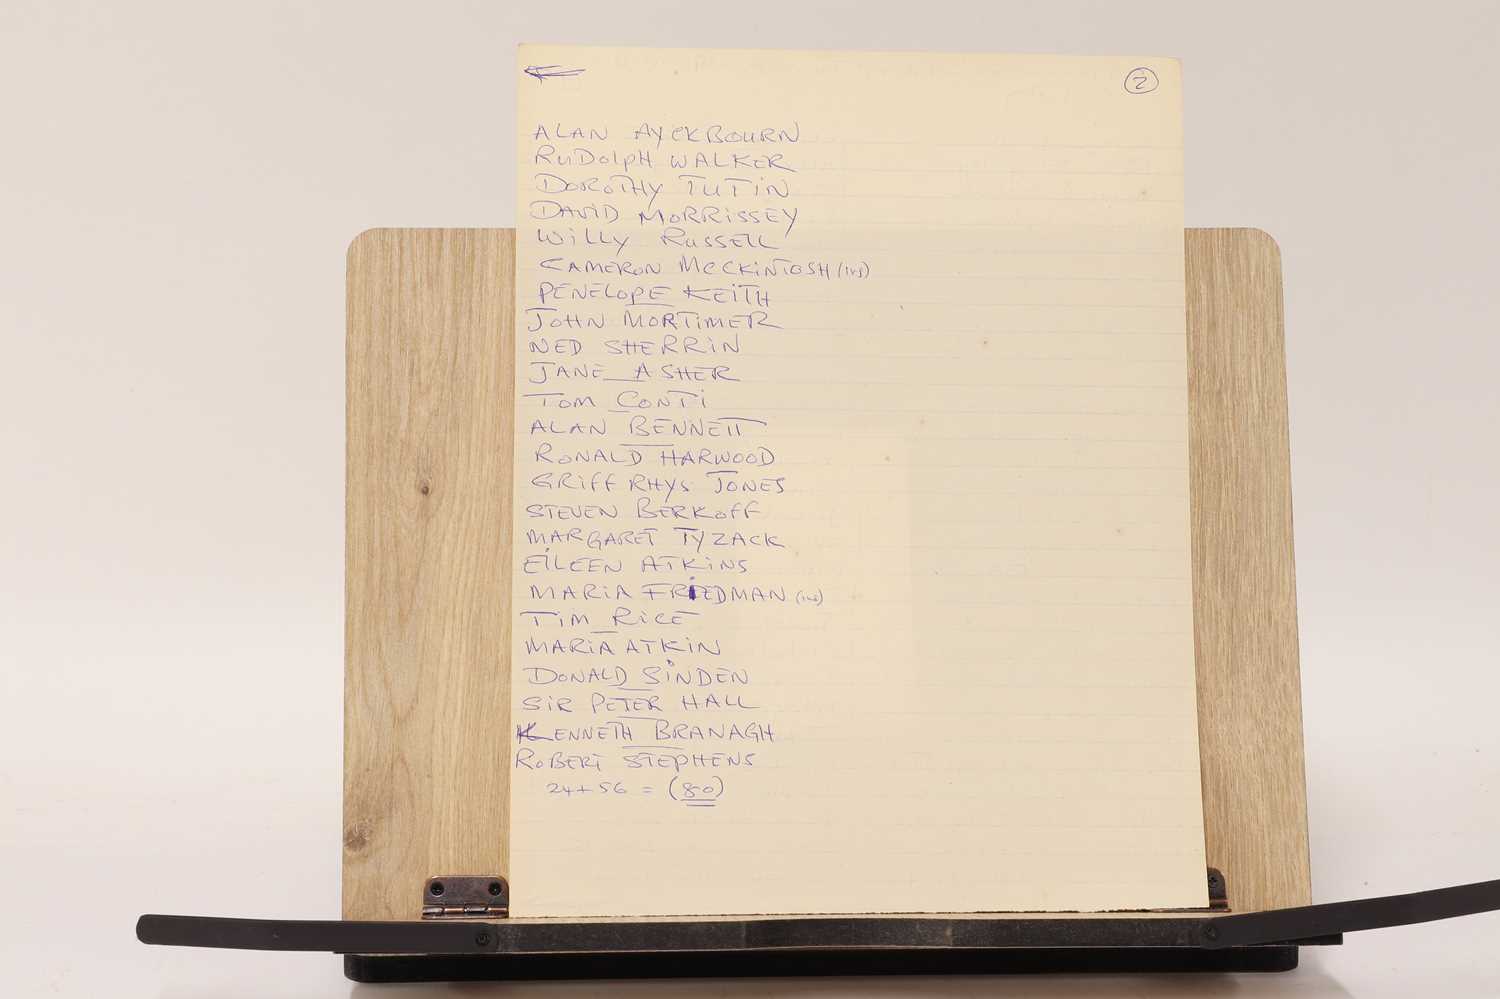 2
ALAN AYCKBOURN
RUDOLPH WALKER
DOROTHY TUTIN
DAVID MORRISSEY
WILLY RUSSELL
CAMERON MCCKINTOSH
PENELOPE KEITH
JOHN MORTIMER
NED SHERRIN
JANE ASHER
TOM CONTI
ALAN BENNETT
RONALD HARWOOD
GRIFF RHYS JONES
STEVEN BERKOFF
MARGARET TYZACK
EILEEN ATKINS
MARIA FRIEDMAN
TIM RICE
MARIA ATKIN
DONALD SINDEN
SIR PETER HALL
KENNETH BRANAGH
ROBERT STEPHENS
24+56 = (80)